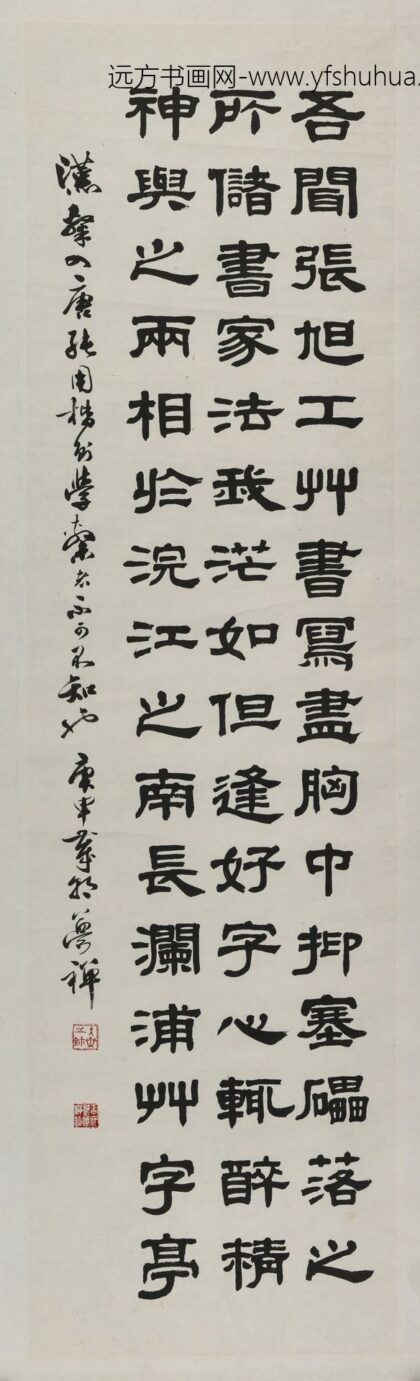 远方书画网-www.yfshuhua.com
吾聞張旭工艸書寫盡胸中抑塞礧落之
所儲書家法我茫如但逢好字心輒醉精
神與之兩相於浣江之南長瀾浦艸字亭
漢隸入唐張用楷 學隸者不可不知也 庚申 夢禪